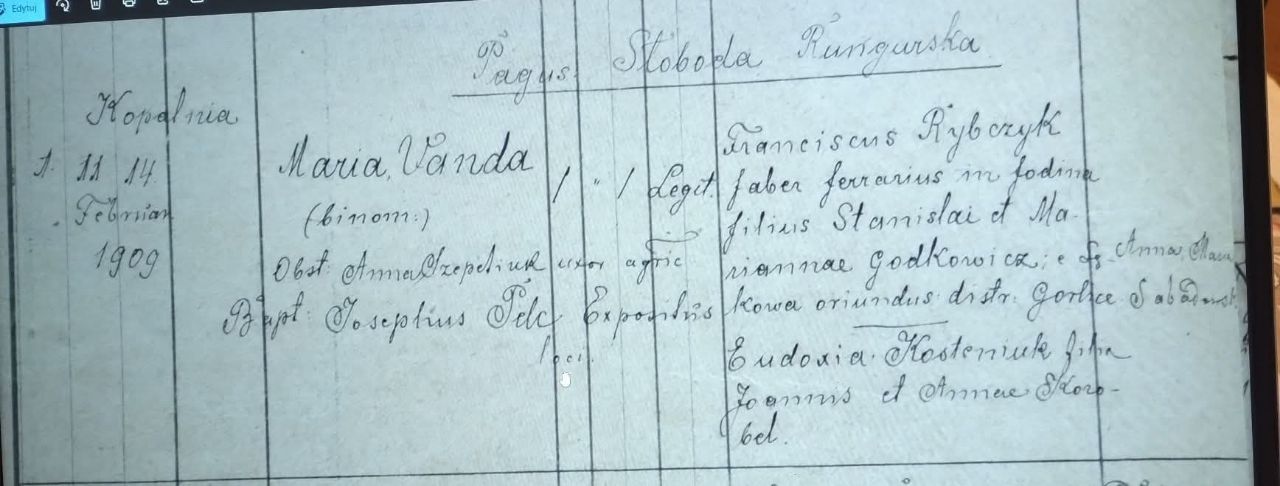 Edytuj
Pagus Słoboda Rungurska
Kopalnia
1. 11 14.
Februar
1909
Maria, Vanda
(binom:)
Obst: Anna uxor agric
Bapt: Josephus Pelc Expositus
loci.
/ " / Legit.
Franciscus Rybczyk
faber ferrarius in fodina
filius Stanislai et Ma-
riannae Godkowicz; e
kowa oriundus distr. Gorlice
Eudoxia Kosteniuk filia
Joannis et Annae Skoro-
bel.
Anna, Maria